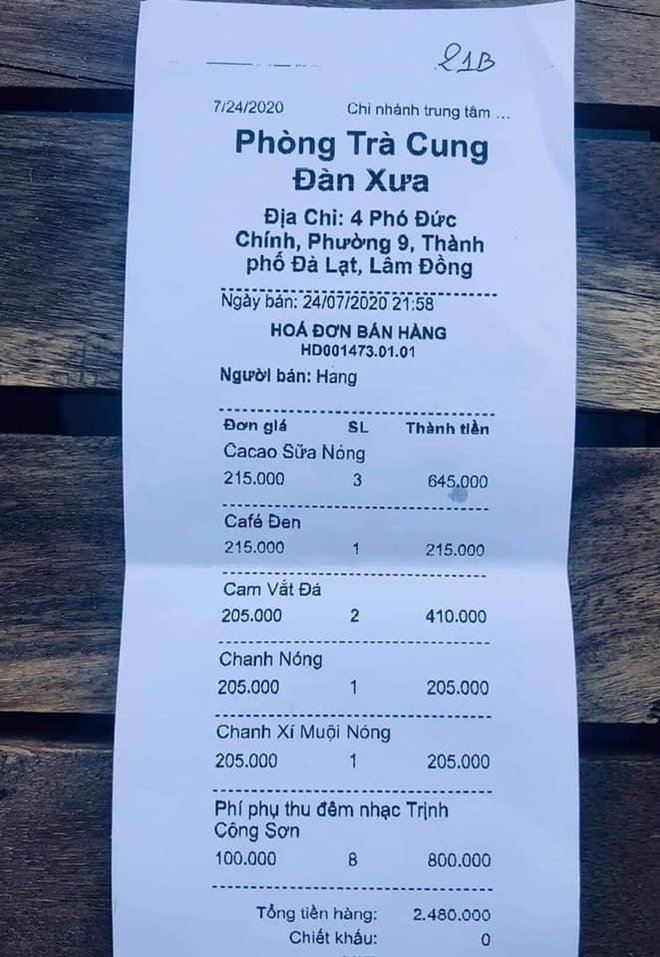 21B
7/24/2020 Chi nhánh trung tâm ...
Phòng Trà Cung
Đàn Xưa
Địa Chỉ: 4 Phó Đức
Chính, Phường 9, Thành
phố Đà Lạt, Lâm Đồng
Ngày bán: 24/07/2020 21:58
HOÁ ĐƠN BÁN HÀNG
HD001473.01.01
Người bán: Hang
Đơn giá SL Thành tiền
Cacao Sữa Nóng
215.000 3 645.000
Café Đen
215.000 1 215.000
Cam Vắt Đá
205.000 2 410.000
Chanh Nóng
205.000 1 205.000
Chanh Xí Muội Nóng
205.000 1 205.000
Phí phụ thu đêm nhạc Trịnh
Công Sơn
100.000 8 800.000
Tổng tiền hàng: 2.480.000
Chiết khấu: 0